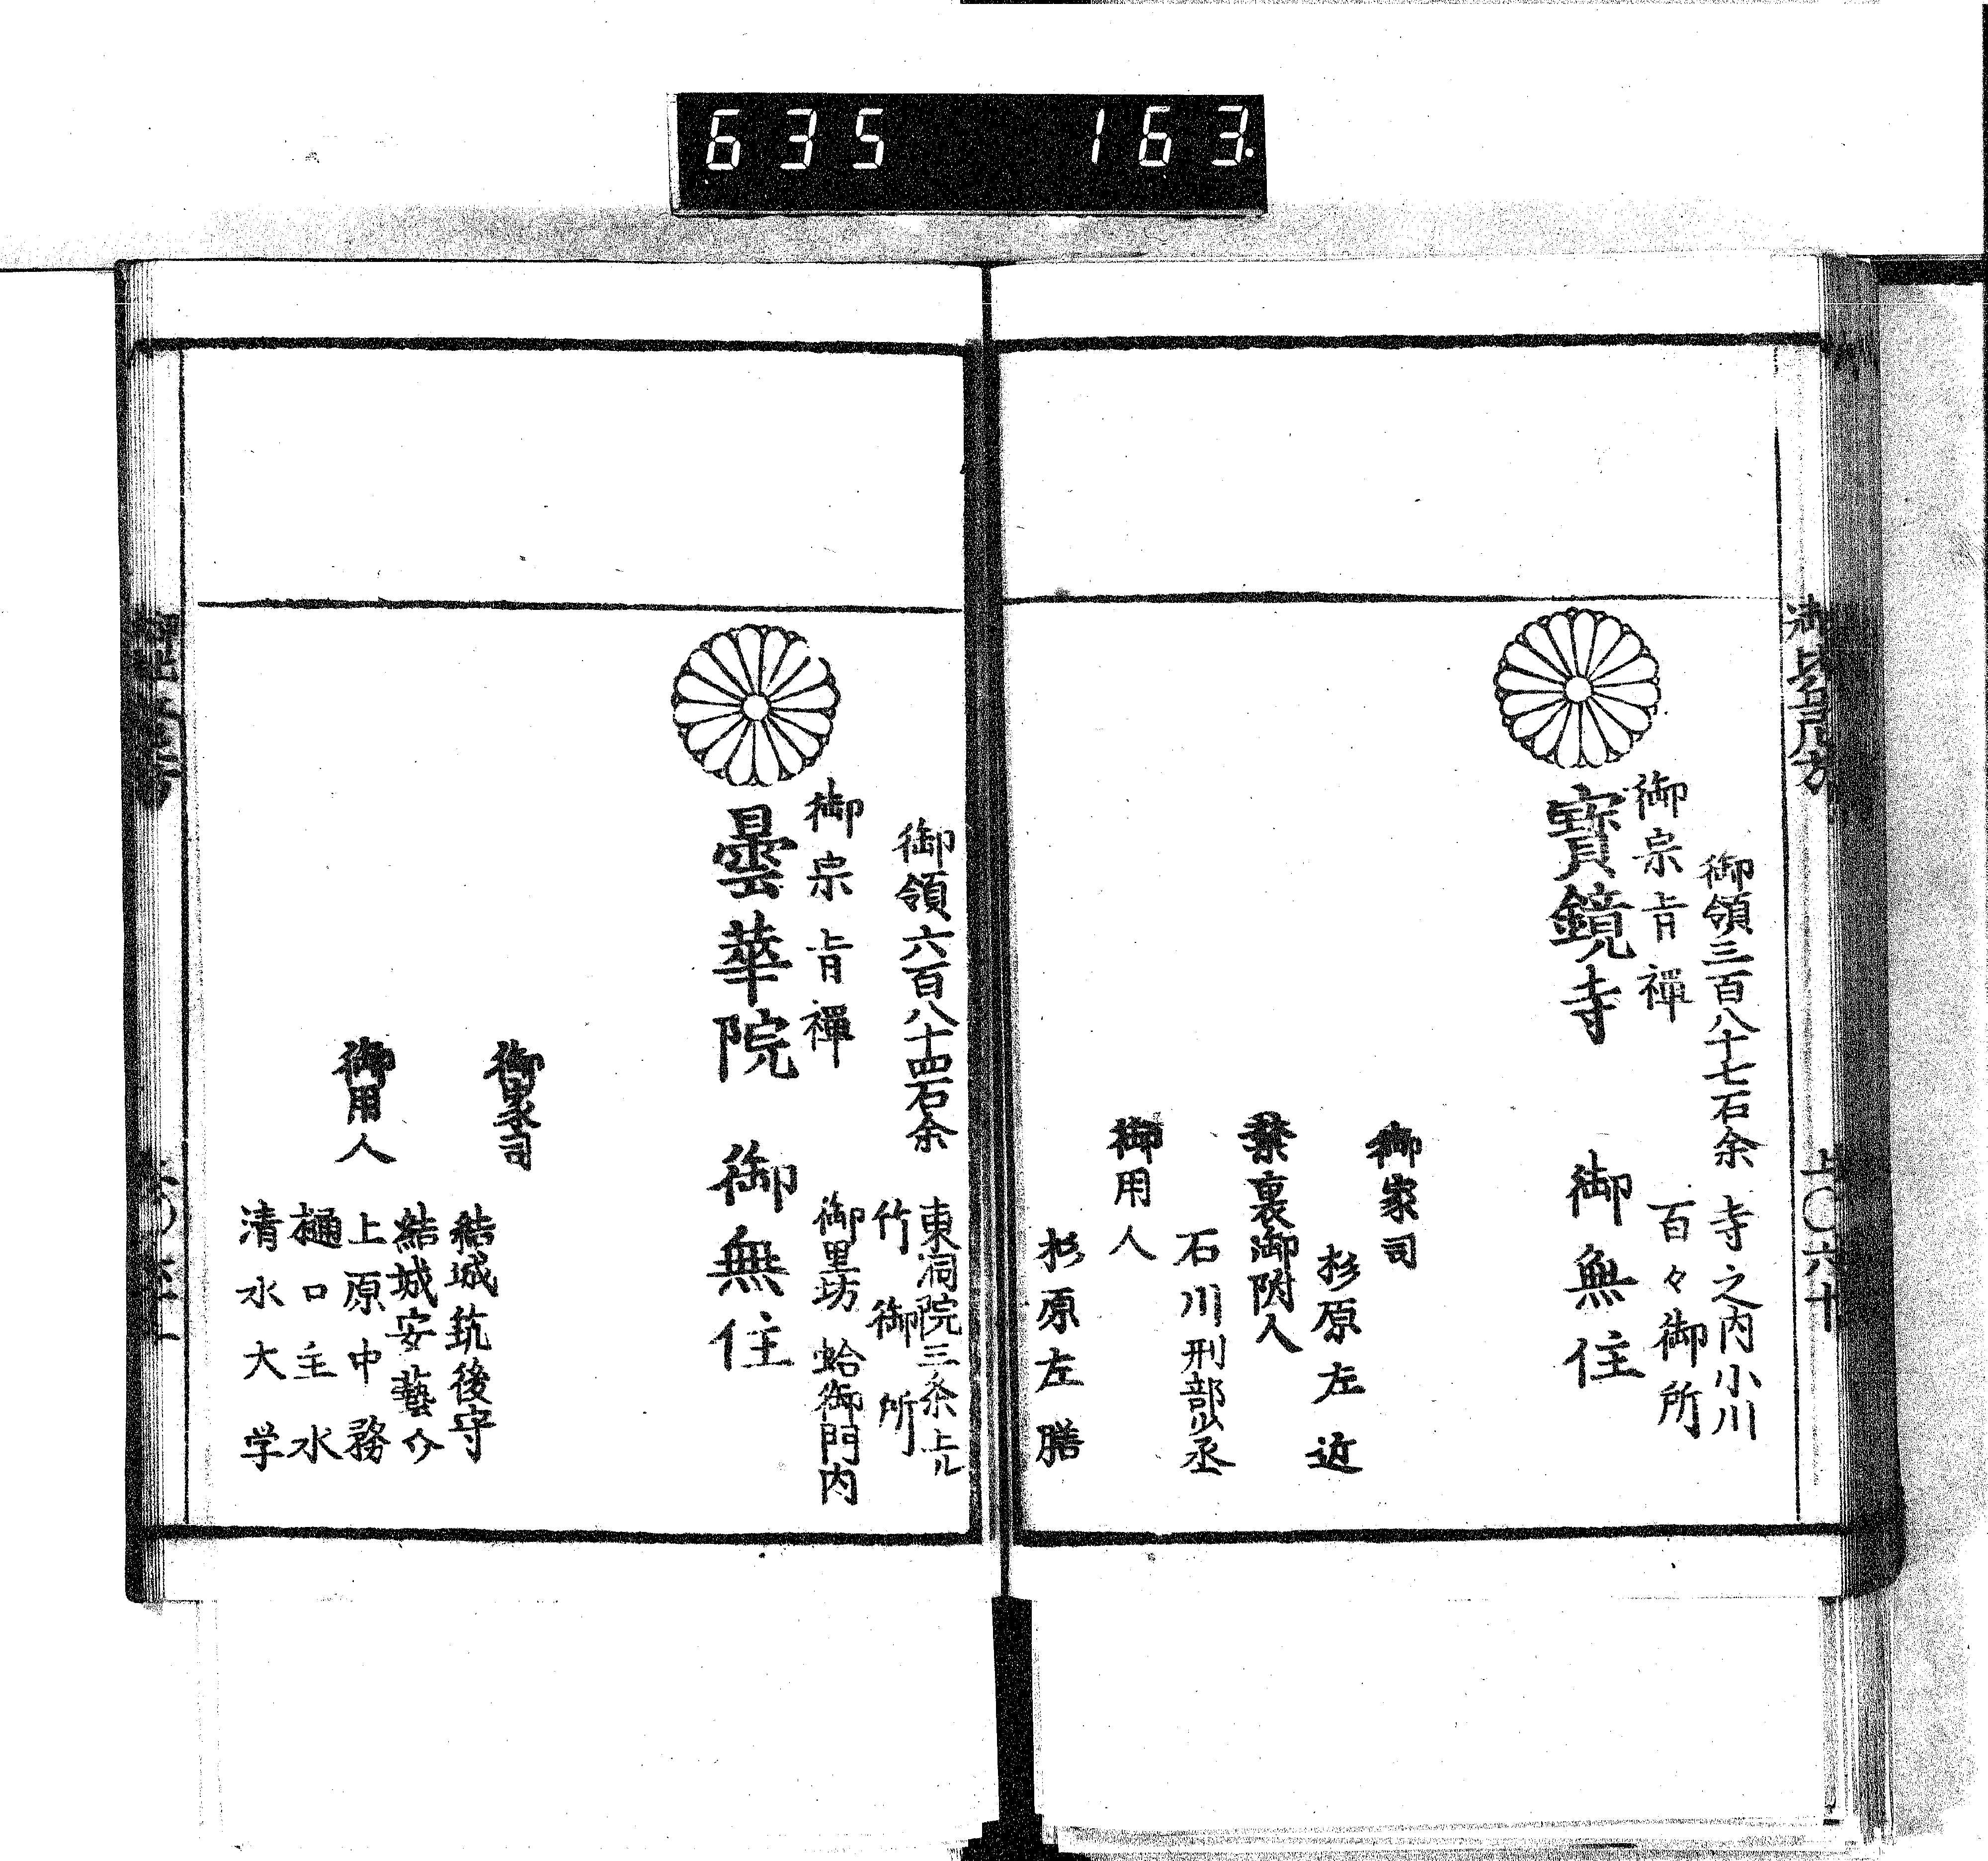 635 163.
御領三百八十七石余
寺之内小川
百々御所
御宗旨禪
寳鏡寺 御無住
御家司
杉原左近
禁裏御附人
石川刑部少丞
御用人
杉原左膳
上〇六十
御領六百八十四石余
東洞院三条上ル
竹御所
御里坊 蛤御門内
御宗旨禪
曇華院 御無住
御家司
結城筑後守
結城安藝介
御用人
上原中務
樋口主水
清水大学